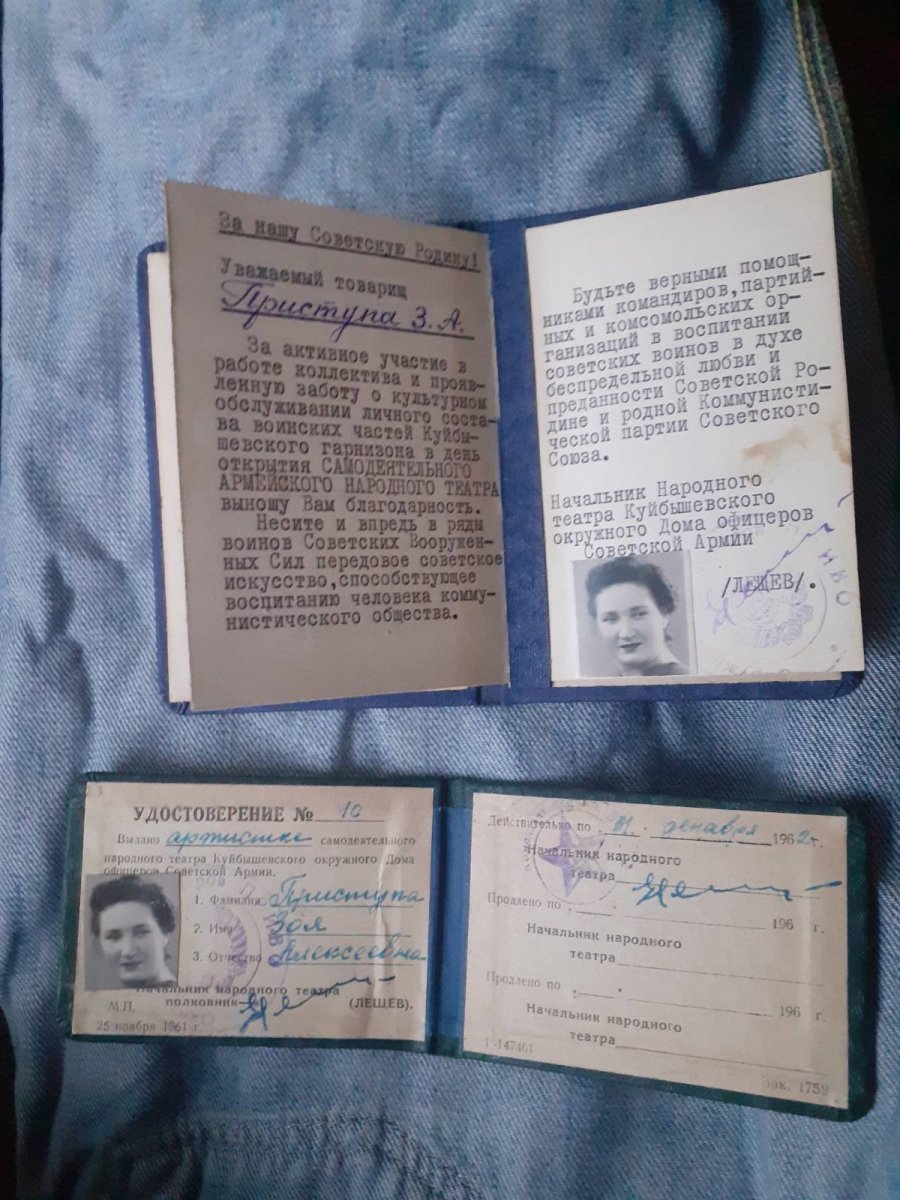 За нашу Советскую Родину!
Уважаемый товарищ
Приступа З. А.
За активное участие в
работе коллектива и прояв-
ленную заботу о культурном
обслуживании личного соста-
ва воинских частей Куйбы-
шевского гарнизона в день
открытия САМОДЕЯТЕЛЬНОГО
АРМЕЙСКОГО НАРОДНОГО ТЕАТРА
выношу Вам благодарность.
Несите и впредь в ряды
воинов Советских Вооружен-
ных Сил передовое советское
искусство,способствующее
воспитанию человека комму-
нистического общества.
Будьте верными помощ-
никами командиров,партий-
ных и комсомольских ор-
ганизаций в воспитании
советских воинов в духе
беспредельной любви и
преданности Советской Ро-
дине и родной Коммунисти-
ческой партии Советского
Союза.
Начальник Народного
театра Куйбышевского
окружного Дома офицеров
Советской Армии
/ЛЕЩЕВ/.
УДОСТОВЕРЕНИЕ № 10
Выдано артистке самодеятельного
народного театра Куйбышевского окружного Дома
офицеров Советской Армии.
1. Фамилия Приступа
2. Имя Зоя
3. Отчество Алексеевна
Начальник народного театра
М.П. полковник (ЛЕЩЕВ).
25 ноября 1961 г.
Действительно по 31. декабря 1962 г.
Начальник народного
театра
Продлено по 196 г.
Начальник народного
театра
Продлено по 196 г.
Начальник народного
театра
Г-147461 Зак. 1759